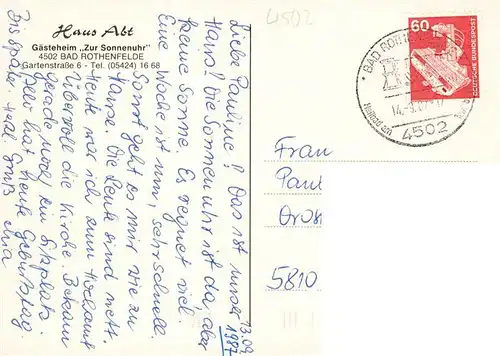 Haus Abt
Gästeheim „Zur Sonnenuhr"
4502 BAD ROTHENFELDE
Gartenstraße 6 - Tel. (05424) 16 68
4502
60
DEUTSCHE BUNDESPOST
BAD ROTHEN
4502
13.09.
1987
Liebe Pauline! Das ist unser
Haus! Die Sonnenuhr ist da, aber
keine Sonne. Es regnet viel.
Eine Woche ist um, sehr schnell.
Sonst geht es mir wie zu
Hause. Die Leute sind nett.
Heute war ich zum Hochamt
Übervoll die Kirche. Bekam
gerade noch ein Sitzplatz.
hat heute Geburtstag.
Bis später. Herzl. Gruß
Frau
Paul
Groß
5810